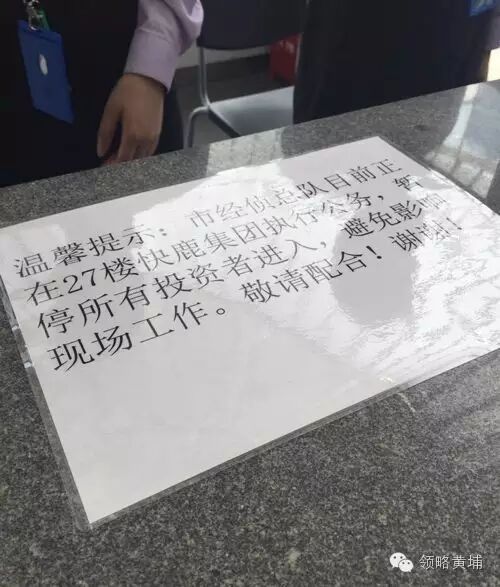 温馨提示：市经侦总队目前正
在27楼快鹿集团执行公务，暂
停所有投资者进入，避免影响
现场工作。敬请配合！谢谢！
领略黄埔